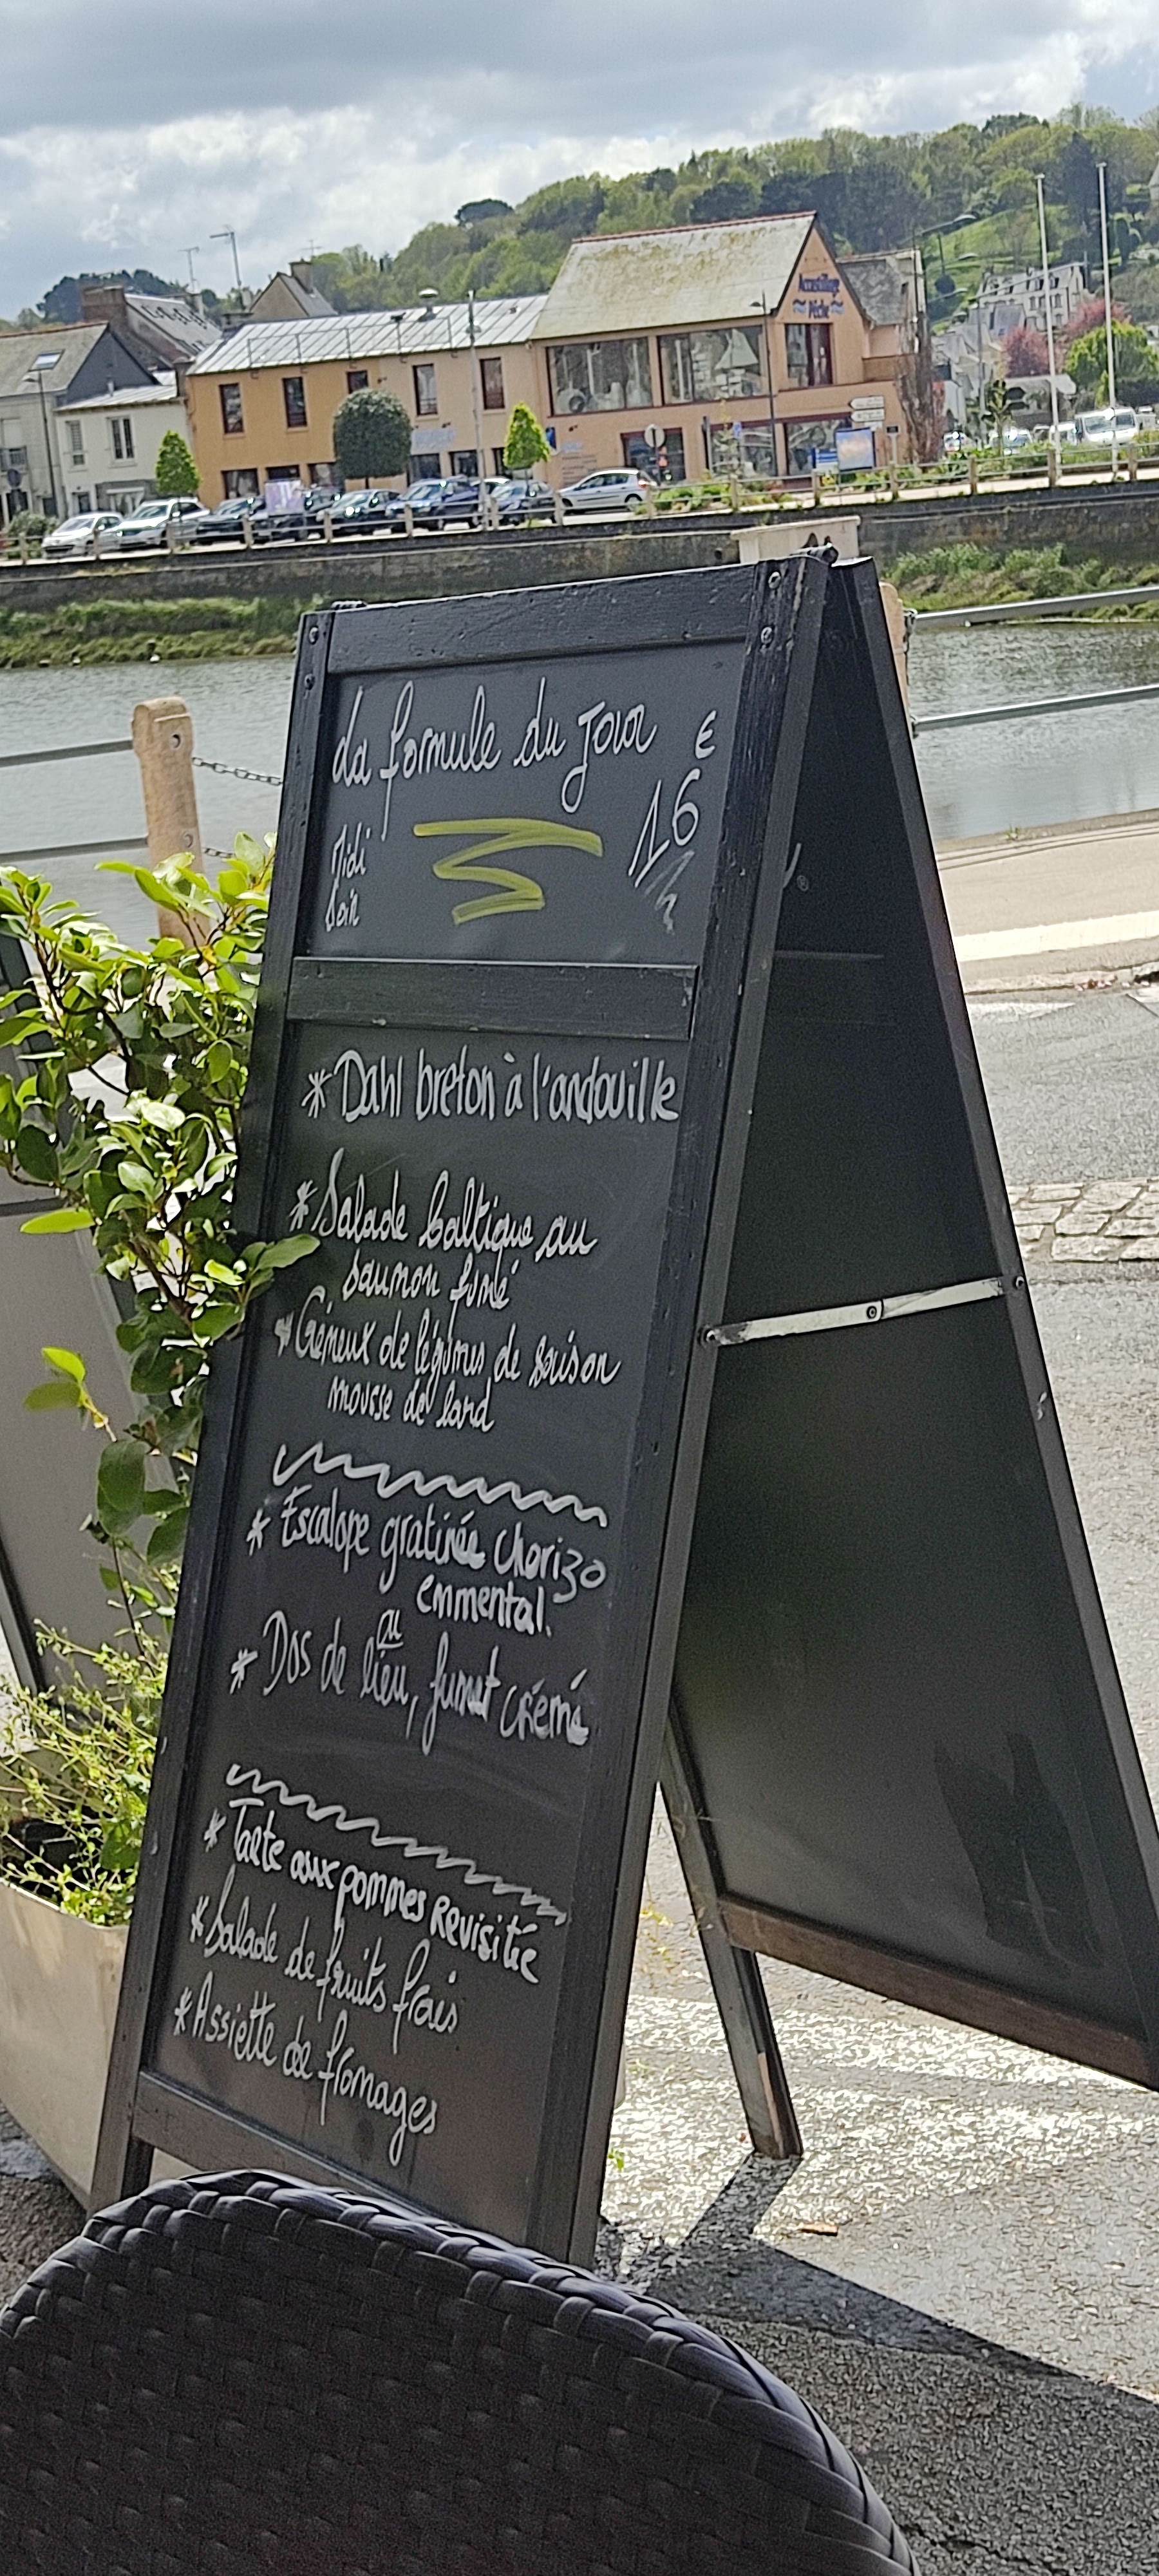 La formule du Jour €
Midi 16
Soir
* Dahl breton à l'andouille
* Salade baltique au
saumon fumé
* Crémeux de légumes de saison
mousse de lard
* Escalope gratinée chorizo
emmental.
ou
* Dos de lieu, fumet crémé
* Tarte aux pommes Revisitée
* Salade de fruits frais
* Assiette de fromages
Pêche